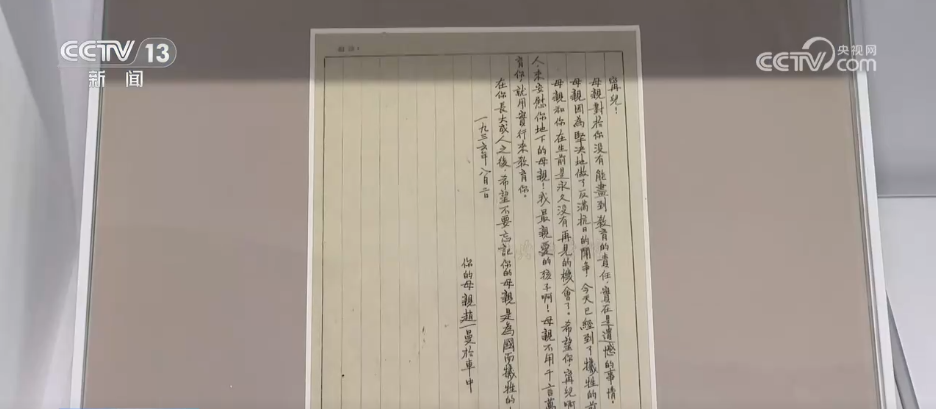 CCTV 13
新闻
央视网
CCTV.com
寧兒！
母親對於你没有能盡到教育的責任，實在是遺憾的事情。
母親因為堅决地做了反滿抗日的鬥爭，今天已經到了犧牲的前
母親和你在生前是永久没有再見的機會了。希望你，寧兒啊
人來安慰你地下的母親！我最親愛的孩子啊！母親不用千言萬
育你，就用實行來教育你。
在你長大成人之後，希望不要忘記你的母親是為國而犧牲的
一九三六年八月二日
你的母親趙一曼於車中